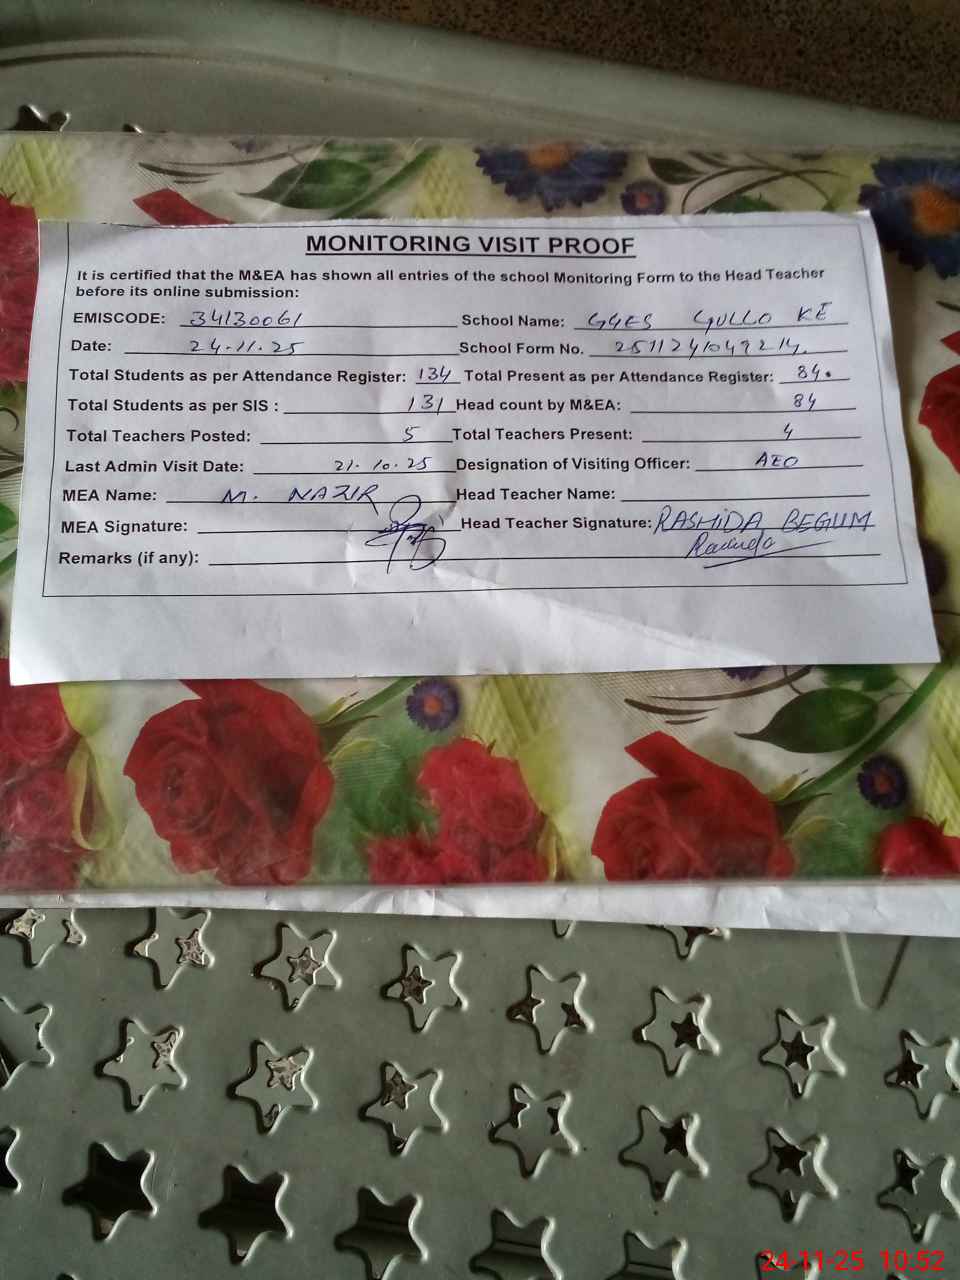 MONITORING VISIT PROOF
It is certified that the M&EA has shown all entries of the school Monitoring Form to the Head Teacher
before its online submission:
EMISCODE: 34130061 School Name: GGES GULLO KE
Date: 24.11.25 School Form No. 2511241049214.
Total Students as per Attendance Register: 134 Total Present as per Attendance Register: 84.
Total Students as per SIS : 131 Head count by M&EA: 84
Total Teachers Posted: 5 Total Teachers Present: 4
Last Admin Visit Date: 21.10.25 Designation of Visiting Officer: AEO
MEA Name: M. NAZIR Head Teacher Name:
MEA Signature: Head Teacher Signature: RASHIDA BEGUM
Remarks (if any):
24-11-25 10:52